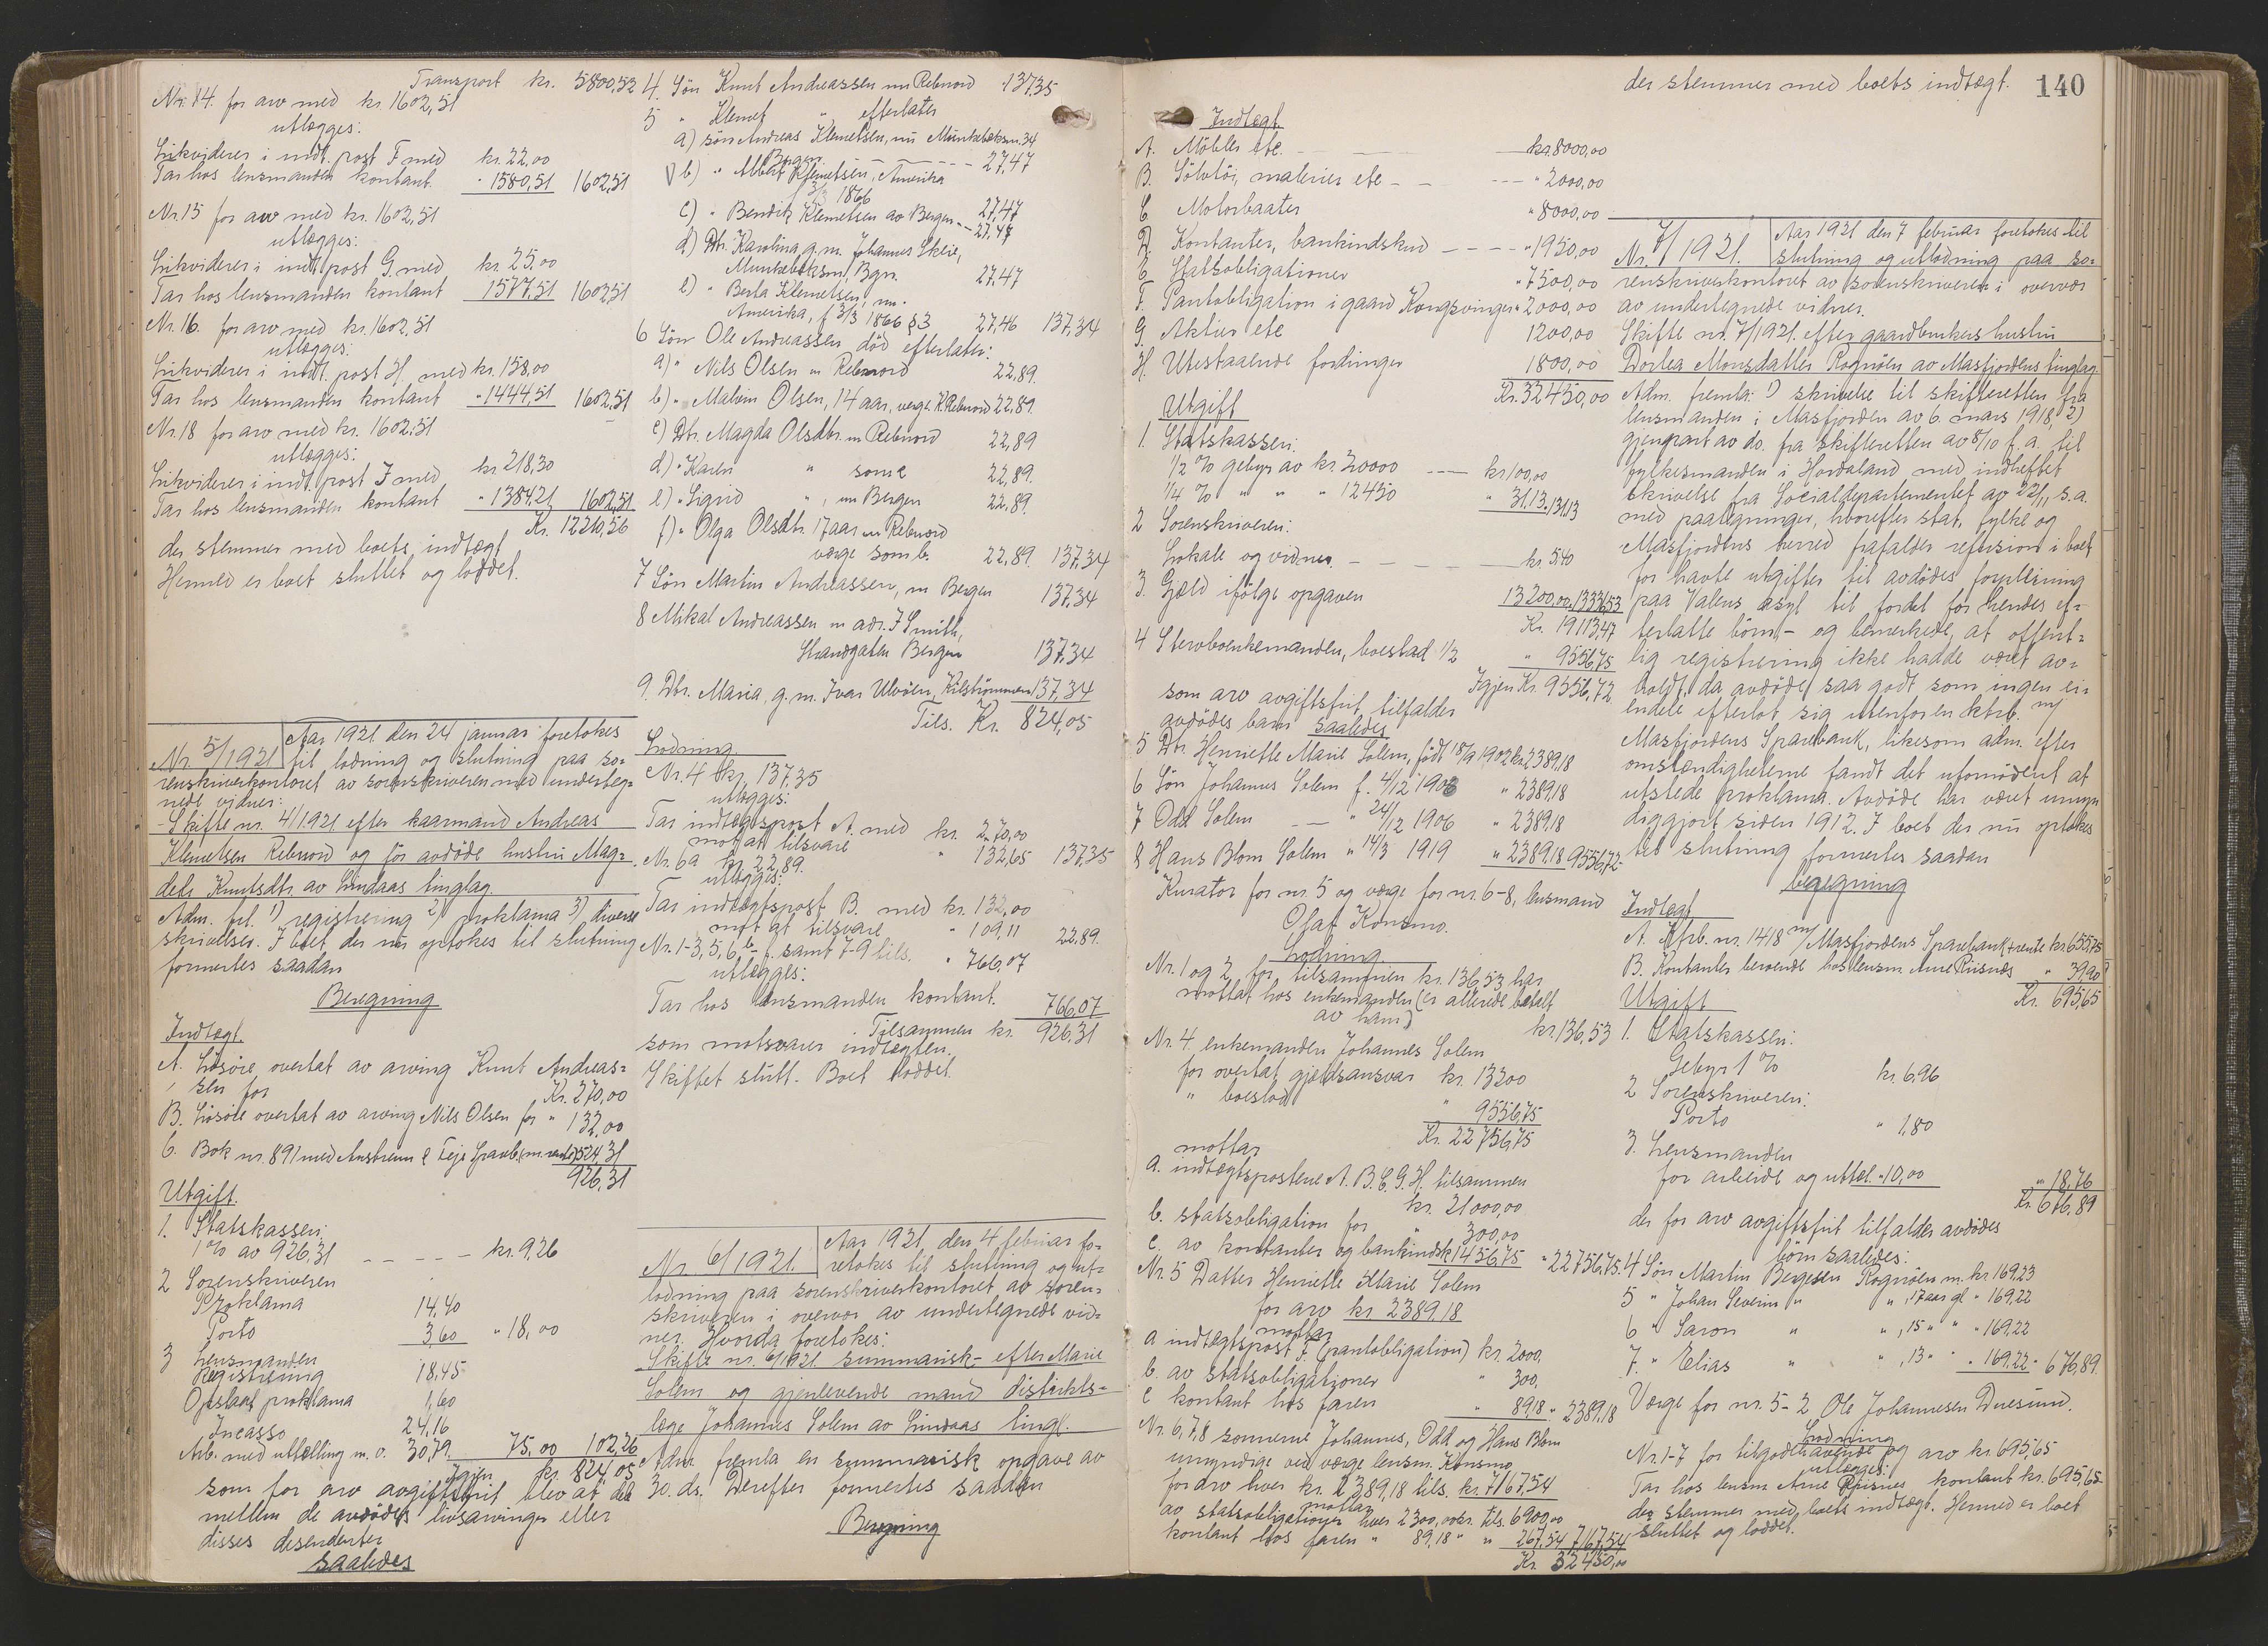 Transport kr. 5800,52
Nr. 14. for arv med kr 1602,51
utlægges:
Likviderer i indt. post F med kr. 22,00
Tar hos lensmanden kontant. " 1580,51 1602,51
Nr. 15 for arv med kr. 1602,51
utlægges:
Likviderer i indt. post G. med kr. 25,00
Tar hos lensmanden kontant 1577,51 1602,51
Nr. 16. for arv med kr. 1602,51
utlægges:
Likviderer i indt. post H. med kr. 158,00
Tar hos lensmanden kontant " 1444,51 1602,51
Nr. 18 for arv med kr. 1602,51
utlægges:
Likviderer i indt. post J med kr 218,30
Tar hos lensmanden kontant " 1384,21 1602,51
Kr. 12210,56
der stemmer med boets indtægt
Hermed er boet sluttet og loddet.
Nr. 5/1921
Aar 1921 den 24 januar foretokes
til lodning og slutning paa so=
renskriverkontoret av sorenskriveren med underteg=
nede vidner:
Skifte nr. 4/1921 efter kaarmand Andreas
Klemetsen Rebnord og før avdøde hustru Mag=
dele Knutsdtr. av Lindaas tinglag.
Adm. frl. 1) registrering 2) proklama 3) diverse
skrivelser. I boet, der nu optokes til slutning
formertes saadan
Beregning
Indtægt.
A. Løsøre overtat av arving Knut Andreas=
sen for Kr. 270,00
B. Løsøre overtat av arving Nils Olsen for " 132,00
C. Bok nr. 891 med Austrheim & Feje Spareb. (m. rente) 524,31
926,31
Utgift.
1. Statskassen:
1% av 926,31 - - - - kr. 9,26
2 Sorenskriveren
Proklama 14,40
Porto 3,60 " 18,00
3 Lensmanden
Registrering 18,45
Opslaat proklama 1,60
Incasso 24,16
Arb. med uttælling m. v. 30,79. 75,00 102,26
Igjen kr. 824,05
som for arv avgiftsfrit blev at dele
mellem de avdødes livsarvinger eller
disses desendenter
saaledes
4. Søn Knut Andreassen nu Rebnord 137,35
5 " Klemet " efterlater
a) søn Andreas Klemetsen, nu Munkebeksm. 34
Bergen - - - - 27,47
b) " Albert Klemetsen, Amerika
3/3 1866
c) " Bendik Klemetsen av Bergen - - 27,47
27,47
d) Dtr. Karolina g. m. Johannes Skeie,
Munkebeksm, Bgn. 27,47
e) " Berta Klemetsen, nu
Amerika, f 3/3 1866 § 3 27,46 137,34
6 Søn Ole Andreassen død efterlater:
a) " Nils Olsen m Rebnord 22,89.
b) " Malvin Olsen, 14 aar, verge K. Rebnord 22,89.
c) Dtr. Magda Olsdtr. m Rebnord 22,89
d) " Karen " some 22,89.
e) " Sigrid " , nu Bergen 22,89.
f) " Olga Olsdtr. 17 aar m Rebnord
værge som b. 22,89. 137,34
7 Søn Martin Andreassen, m Bergen 137,34
8 Mikal Andreassen m adr. J Smith,
Strandgaten Bergen 137,34
9. Dtr. Maria, g. m. Ivar Ulvøen, Kilstrømmen 137,34
Tils. Kr. 824,05
Lodning.
Nr. 4 kr. 137,35
utlægges:
Tar indtægtspost A. med kr. 270,00
mot at tilsvare " 132,65 137,35
Nr. 6a kr. 22,89.
utlægges:
Tar indtægtspost B. med kr. 132,00
mot at tilsvare " 109,11 22,89.
Nr. 1-3, 5, 6 b - f. samt 7-9 tils. " 766,07
utlægges:
Tar hos lensmanden kontant. 766,07
Tilsammen kr. 926,31
som motsvarer indtægten.
Skiftet slutt. Boet loddet.
Nr. 6/1921.
Aar 1921 den 4 februar fo=
retokes til slutning og ut=
lodning paa sorenskriverkontoret av soren=
skriveren i overvær av undertegnede vid=
ner. Hvorda foretokes:
Skifte nr. 6/1921 summarisk - efter Marie
Solem og gjenlevende mand distrikts=
læge Johannes Solem av Lindaas tingl.
Adm. fremla en summarisk opgave av
30. ds. Derefter formertes saadan
Beregning
140
Indtægt.
A. Møbler etc. - - - kr. 8000,00
B. Sølvtøi, malerier etc - - - " 2000,00
C Motorbaater " 8000,00
D. Kontanter, bankindskud - - - - " 1950,00
E Statsobligationer " 7500,00
F. Pantobligation i gaard Kongsvinger " 2000,00
G. Aktier etc 1200,00
H. Utestaaende fordringer 1800,00
Kr. 32450,00
Utgift
1. Statskassen:
1/2 % gebyr av kr. 20000 - - - kr 100,00
1/4 % " " " 12450 " 31,13. 131,13
2 Sorenskriveren:
Lokale og vidner. - - - - kr. 5,40
3. Gjæld ifølge opgaven 13200,00. 13336,53
Kr. 19113,47
4 Stervboenkemanden, boeslod 1/2 " 9556,75
Igjen Kr. 9556,72
som arv avgiftsfrit tilfalder
avdødes barn saaledes
5 Dtr. Henriette Marie Solem, født 18/9 1902 kr. 2389,18
6 Søn Johannes Solem f. 4/12 1903 " 2389,18
7 Odd Solem - - " 24/12 1906 " 2389,18
8 Hans Blom Solem " 14/3 1919 " 2389,18 9556,72
Kurator for nr. 5 og værge for nr. 6-8, lensmand
Olaf Konsmo.
Lodning
Nr. 1 og 2 for tilsammen kr. 136,53 har
mottat hos enkemanden (er allerede betalt
av ham) kr. 136,53
Nr. 4, enkemanden Johannes Solem
for overtat gjældsansvar kr. 13200
" boeslod " 9556,75
Kr. 22756,75
mottar
a. indtægtsposterne A. B. C. G. H. tilsammen
kr. 21000,00
b. statsobligation for " 300,00
c. av kontanter og bankindsk 1456,75 " 22756,75.
Nr. 5 Datter Henriette Marie Solem
for arv kr 2389,18
mottar
a indtægtspost F. (pantobligation) kr. 2000,
b. av statsobligationer " 300,
c kontant hos faren " 89,18 " 2389,18
Nr. 6, 7, 8 sønnerne Johannes, Odd og Hans Blom
umyndige ved værge lensm. Konsmo
for arv hver kr. 2389,18 tils. kr. 7167,54
mottar
av statsobligationer hver 2300,00 kr. tils. 6900,00
kontant hos faren " 89,18 " " 267,54 7167,54
Kr. 32450,00
der stemmer med boets indtægt.
Nr. 7/1921.
Aar 1921 den 7 februar foretokes til
slutning og utlodning paa so=
renskriverkontoret av sorenskriveren i overvær
av undertegnede vidner.
Skifte nr. 7/1921. efter gaardbrukers hustru
Dortea Monsdatter Rognøen av Masfjordens tinglag.
Adm. fremla: 1) skrivelse til skifteretten fra
lensmanden i Masfjorden av 6. mars 1918, 2)
gjenpart av do. fra skifteretten av 8/10 f. a. til
fylkesmanden i Hordaland med indheftet
skrivelse fra Socialdepartementet av 22/11 s. a.
med paategninger, hvorefter stat, fylke og
Masfjordens herred frafalder refusion i boet
for havte utgifter til avdødes forpleining
paa Valens asyl til fordel for hendes ef=
terlatte børn, - og bemerkede, at offent=
lig registrering ikke hadde været av=
holdt, da avdøde saa godt som ingen ei=
endele efterlot sig utenfor en ktrb. m/
Masfjordens Sparebank, likesom adm. efter
omstændigheterne fandt det ufornødent at
utstede proklama. Avdøde har været umyn
diggjort siden 1912. I boet der nu optokes
til slutning formertes saadan
beregning
Indtægt
A. Ktrb. nr. 1418 m/ Masfjordens Sparebank + rente kr 655,75
B. Kontanter beroende hos lensm. Arne Riisnæs " 39,90
Kr. 695,65
Utgift
1. Statskassen:
Gebyr 1 % kr. 6,96
2 Sorenskriveren:
Porto " 1,80
3. Lensmanden
for arbeide og uttæl. " 10,00 " 18,76
Kr. 676,89
der for arv avgiftsfrit tilfalder avdødes
børn saaledes:
4 Søn Martin Bergesen Rognøen m. kr. 169,23
5 " Johan Severin " " , 17 aar gl " 169,22
6 " Saron " " , 15 " " " 169,22
7. " Elias " " , 13 " " " 169,22 " 676,89.
Værge for nr. 5- Ole Johannesen Duesund.
Lodning
Nr. 1-7 for tilgodehavende og arv kr. 695,65
utlægges:
Tar hos lensm Arne Riisnes kontant kr. 695,65
der stemmer med boets indtægt. Hermed er boet
sluttet og loddet.